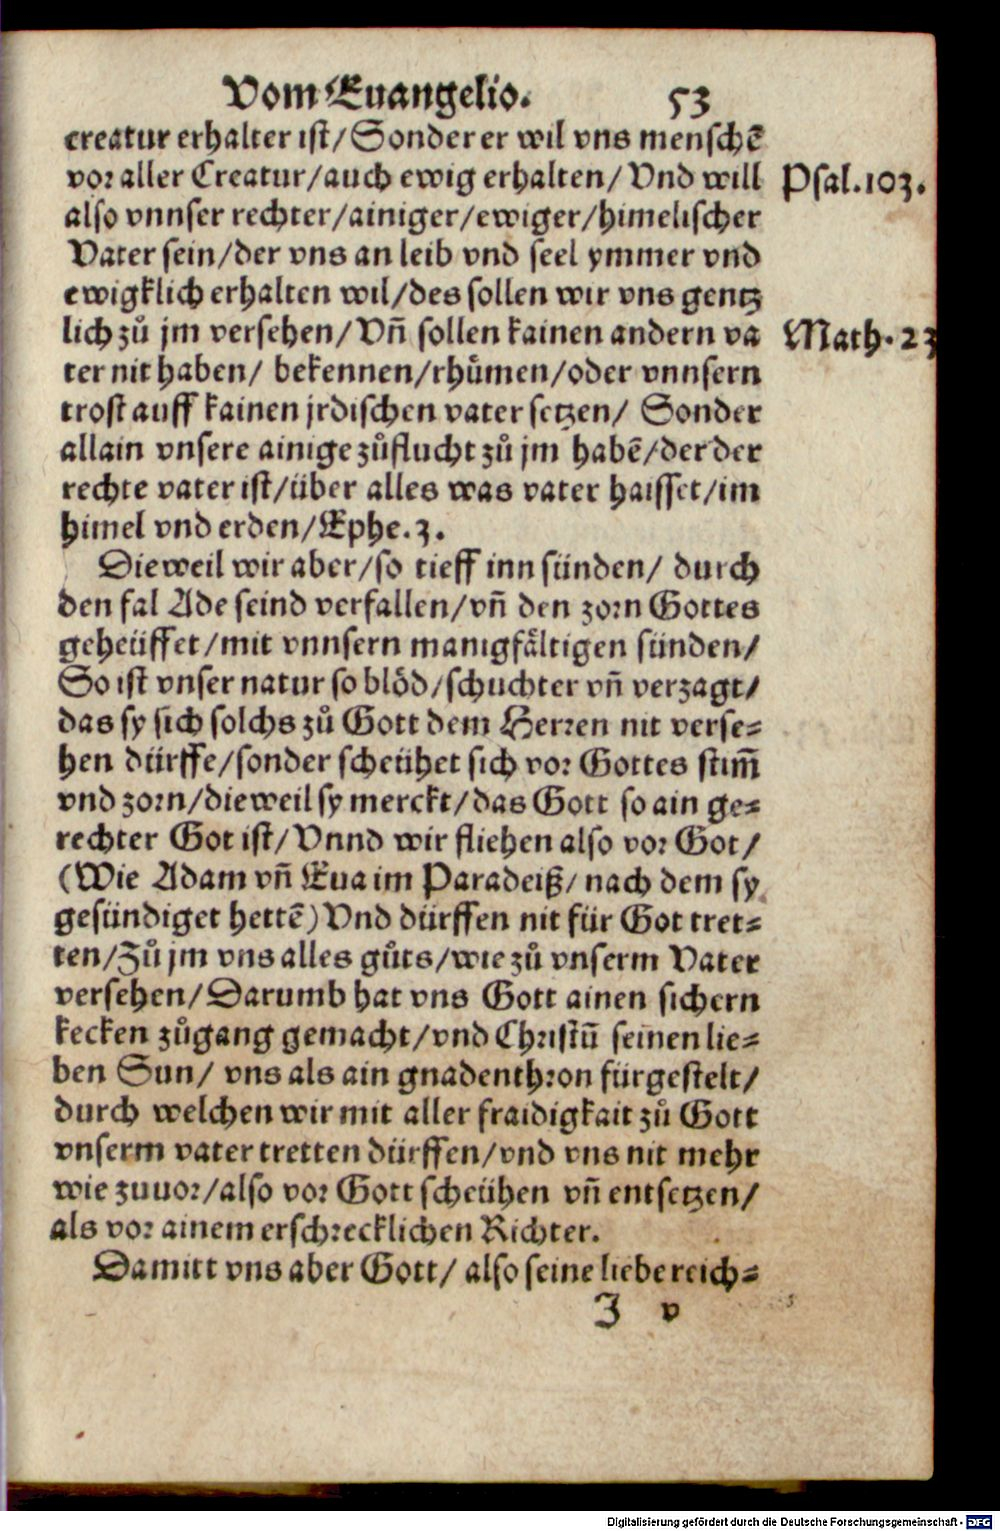 Vom Euangelio. 53
creatur erhalter ist/Sonder er wil vns menschẽ
vor aller Creatur/auch ewig erhalten/Vnd will
Psal.103.
also vnnser rechter/ainiger/ewiger/himelischer
Vater sein/der vns an leib vnd seel ymmer vnd
ewigklich erhalten wil/des sollen wir vns gentz
lich zů jm versehen/Vñ sollen kainen andern va
Math.23
ter nit haben/ bekennen/rhůmen/oder vnnsern
trost auff kainen jrdischen vater setzen/ Sonder
allain vnsere ainige zůflucht zů jm habẽ/der der
rechte vater ist/über alles was vater haisset/im
himel vnd erden/Ephe.3.
Dieweil wir aber/so tieff inn sünden/ durch
den fal Ade seind verfallen/vñ den zorn Gottes
geheüffet/mit vnnsern manigfåltigen sünden/
So ist vnser natur so blöd/schuchter vñ verzagt/
das sy sich solchs zů Gott dem Herren nit verse⸗
hen dürffe/sonder scheühet sich vor Gottes stim̃
vnd zorn/dieweil sy merckt/das Gott so ain ge⸗
rechter Got ist/Vnnd wir fliehen also vor Got/
(Wie Adam vñ Eua im Paradeiß/ nach dem sy
gesündiget hettẽ) Vnd dürffen nit für Got tret⸗
ten/Zů jm vns alles gůts/wie zů vnserm Vater
versehen/Darumb hat vns Gott ainen sichern
kecken zůgang gemacht/vnd Christũ seinen lie⸗
ben Sun/ vns als ain gnadenthron fürgestelt/
durch welchen wir mit aller fraidigkait zů Gott
vnserm vater tretten dürffen/vnd vns nit mehr
wie zuuor/also vor Gott scheühen vñ entsetzen/
als vor ainem erschrecklichen Richter.
Damitt vns aber Gott/ also seine liebe reich⸗
J v
Digitalisierung gefördert durch die Deutsche Forschungsgemeinschaft - DFG